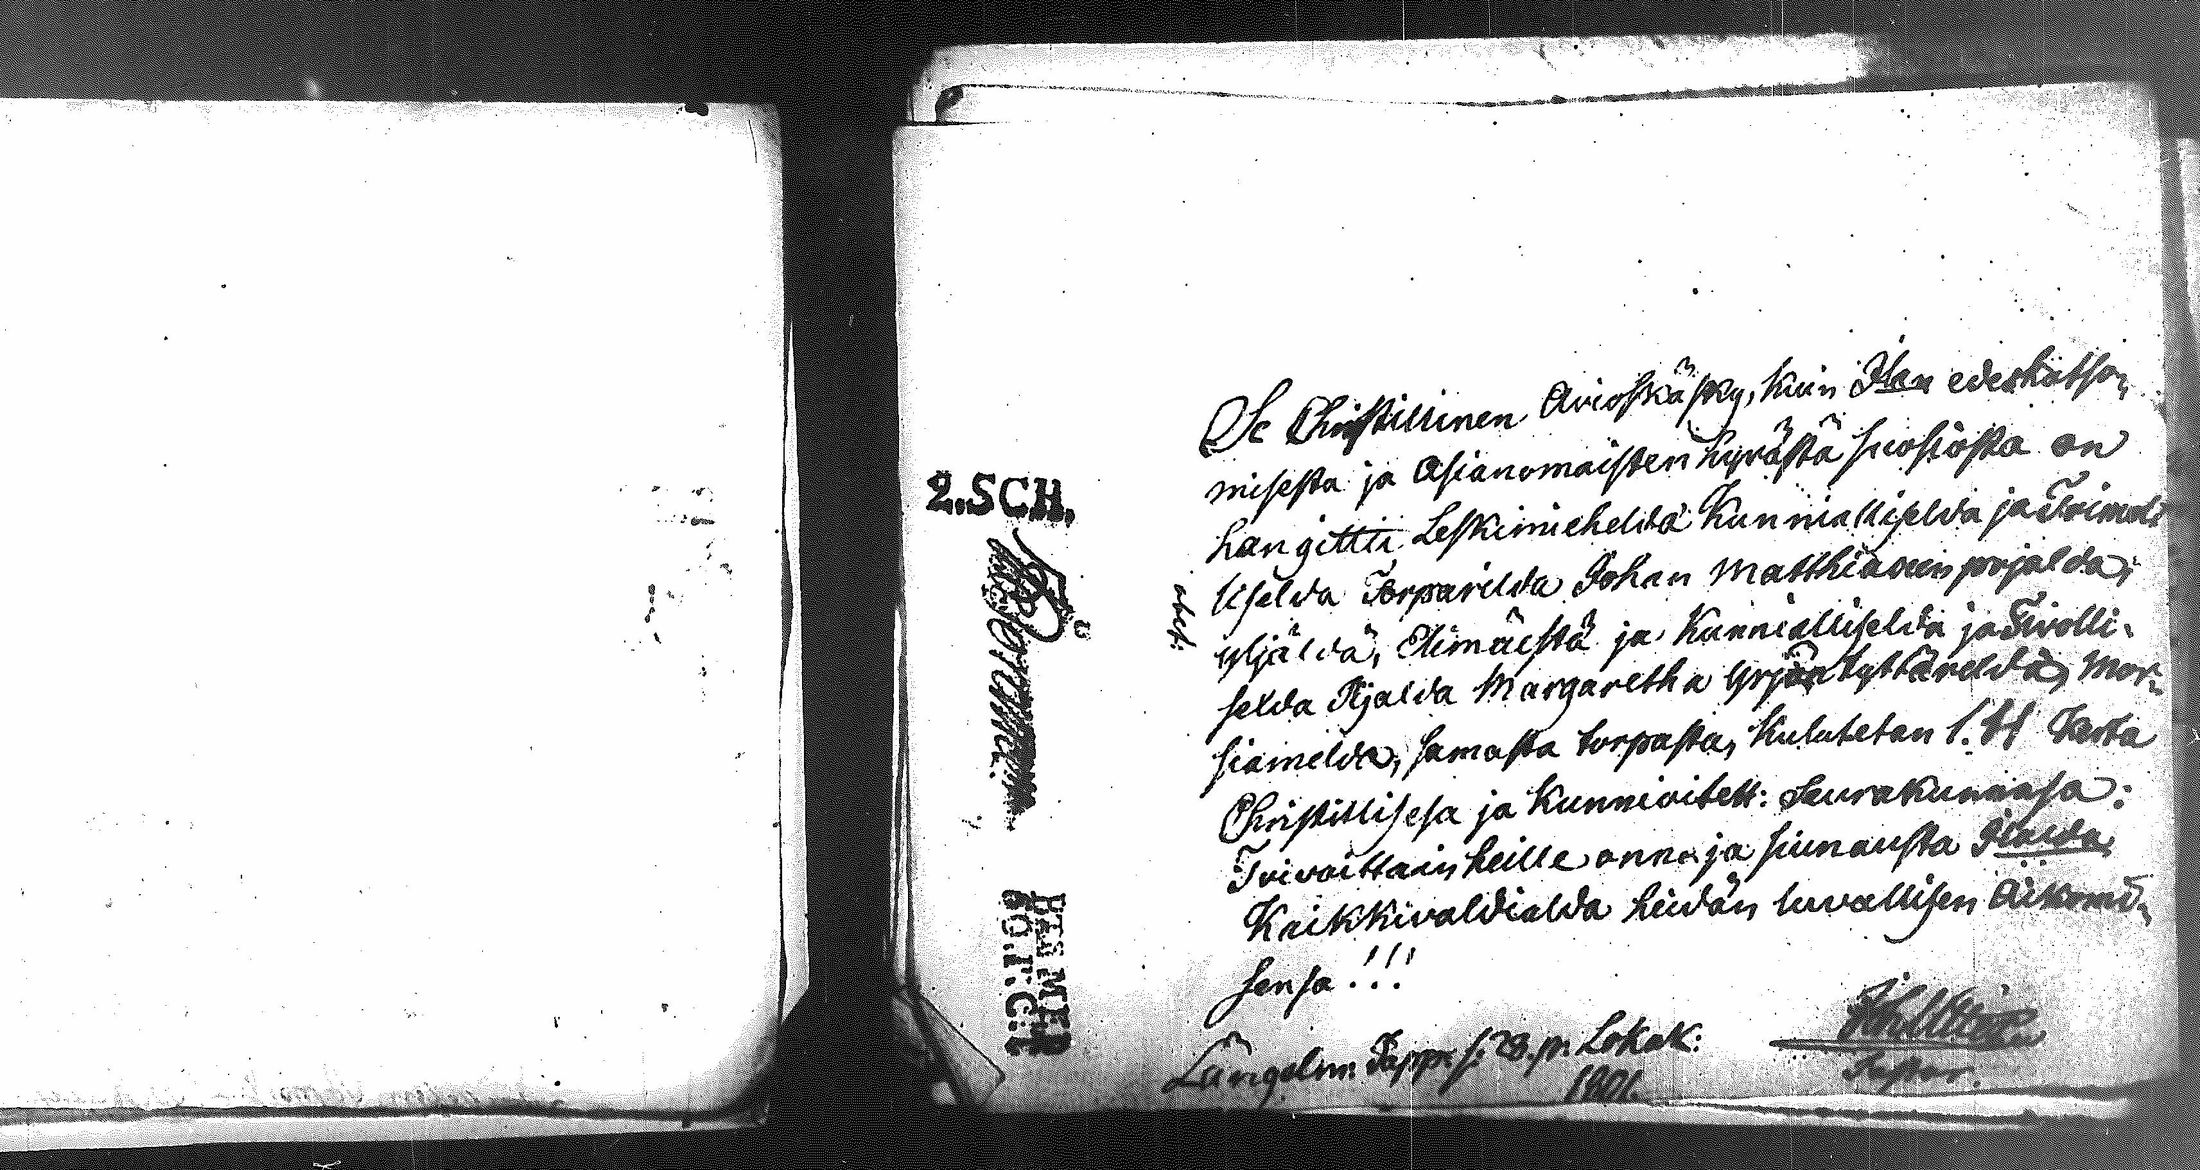 2. SCH.
Se Christillinen Avioskäsky, kuin Ilen edeskatso-
misesta ja Asianomaisten hyvästä suosiosta on
hangittu Leskimieheldä Kunnialliselda ja Toimeli
liselda Torparilda Johan Matthiaxen pojalda,
yljäldä, Elimäestä ja Kunnialliselda ja Sivolli-
selda Pijalda Margaretha Yrjön tyttäreldä, Mor-
siamelda, samasta torpasta, Kulutetan 1. H kerta
Christillisesa ja Kunnioitett: Seurakunnasa:
Toivoittain heille onna ja siunausta Ilalda
Kaikkivaldialda heidän luvallisen Aikomi-
sensa!!!
Längelm: Papp: s. 23. p. Lokak:
1801.
Pastor.